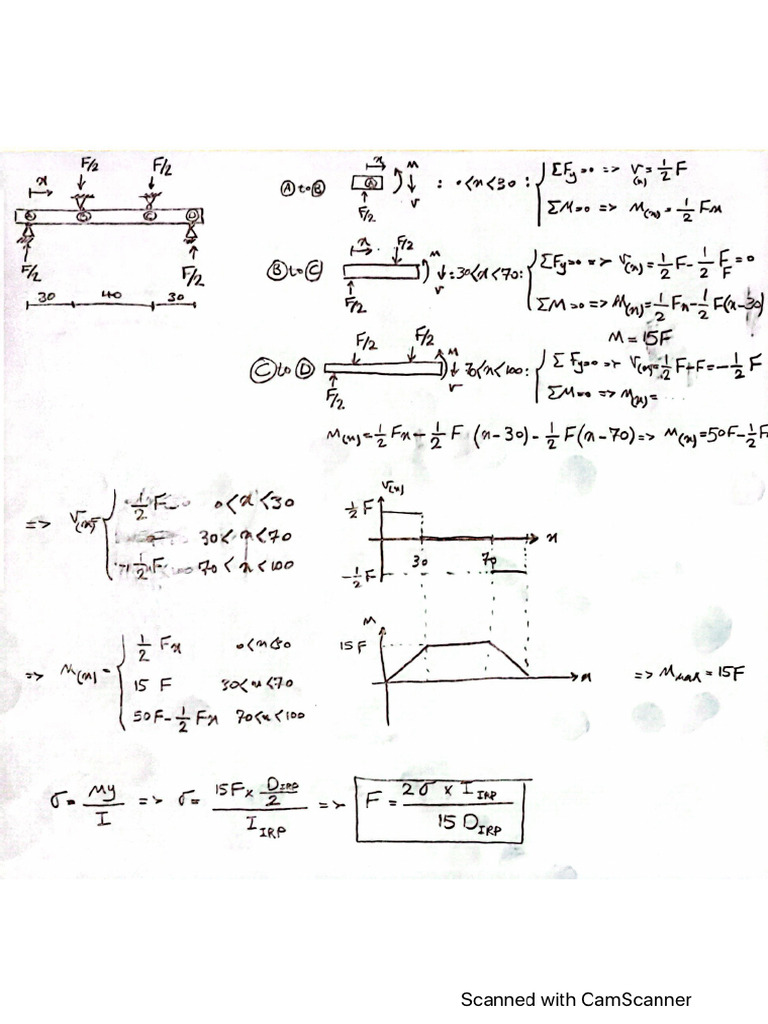 x F/2 F/2
A B C D
F/2 F/2
30 40 30
Ⓐ to Ⓑ x A M V F/2 : 0<x<30 : { ΣFy=0 => V(x)=1/2 F
ΣM=0 => M(x)=1/2 Fx
Ⓑ to Ⓒ x F/2 M V F/2 : 30<x<70 : { ΣFy=0 => V(x)=1/2 F-1/2 F=0
F
ΣM=0 => M(x)=1/2 Fx-1/2 F(x-30)
M=15F
Ⓒ to Ⓓ F/2 F/2 M V F/2 70<x<100 : { ΣFy=0 => V(x)=1/2 F-F=-1/2 F
ΣM=0 => M(x)=....
M(x)=1/2 Fx-1/2 F (x-30)-1/2 F(x-70)=> M(x)=50F-1/2 F
=> V(x)= { 1/2 F 0<x<30
30<x<70
-1/2 F 70<x<100
V(x)
1/2 F
30 70 x
-1/2 F
=> M(x)= { 1/2 Fx 0<x<30
15 F 30<x<70
50F-1/2 Fx 70<x<100
M
15F
x
=> Mmax=15F
σ=My/I => σ=(15F x D_IRP/2)/I_IRP => F=(2σ x I_IRP)/(15 D_IRP)
Scanned with CamScanner